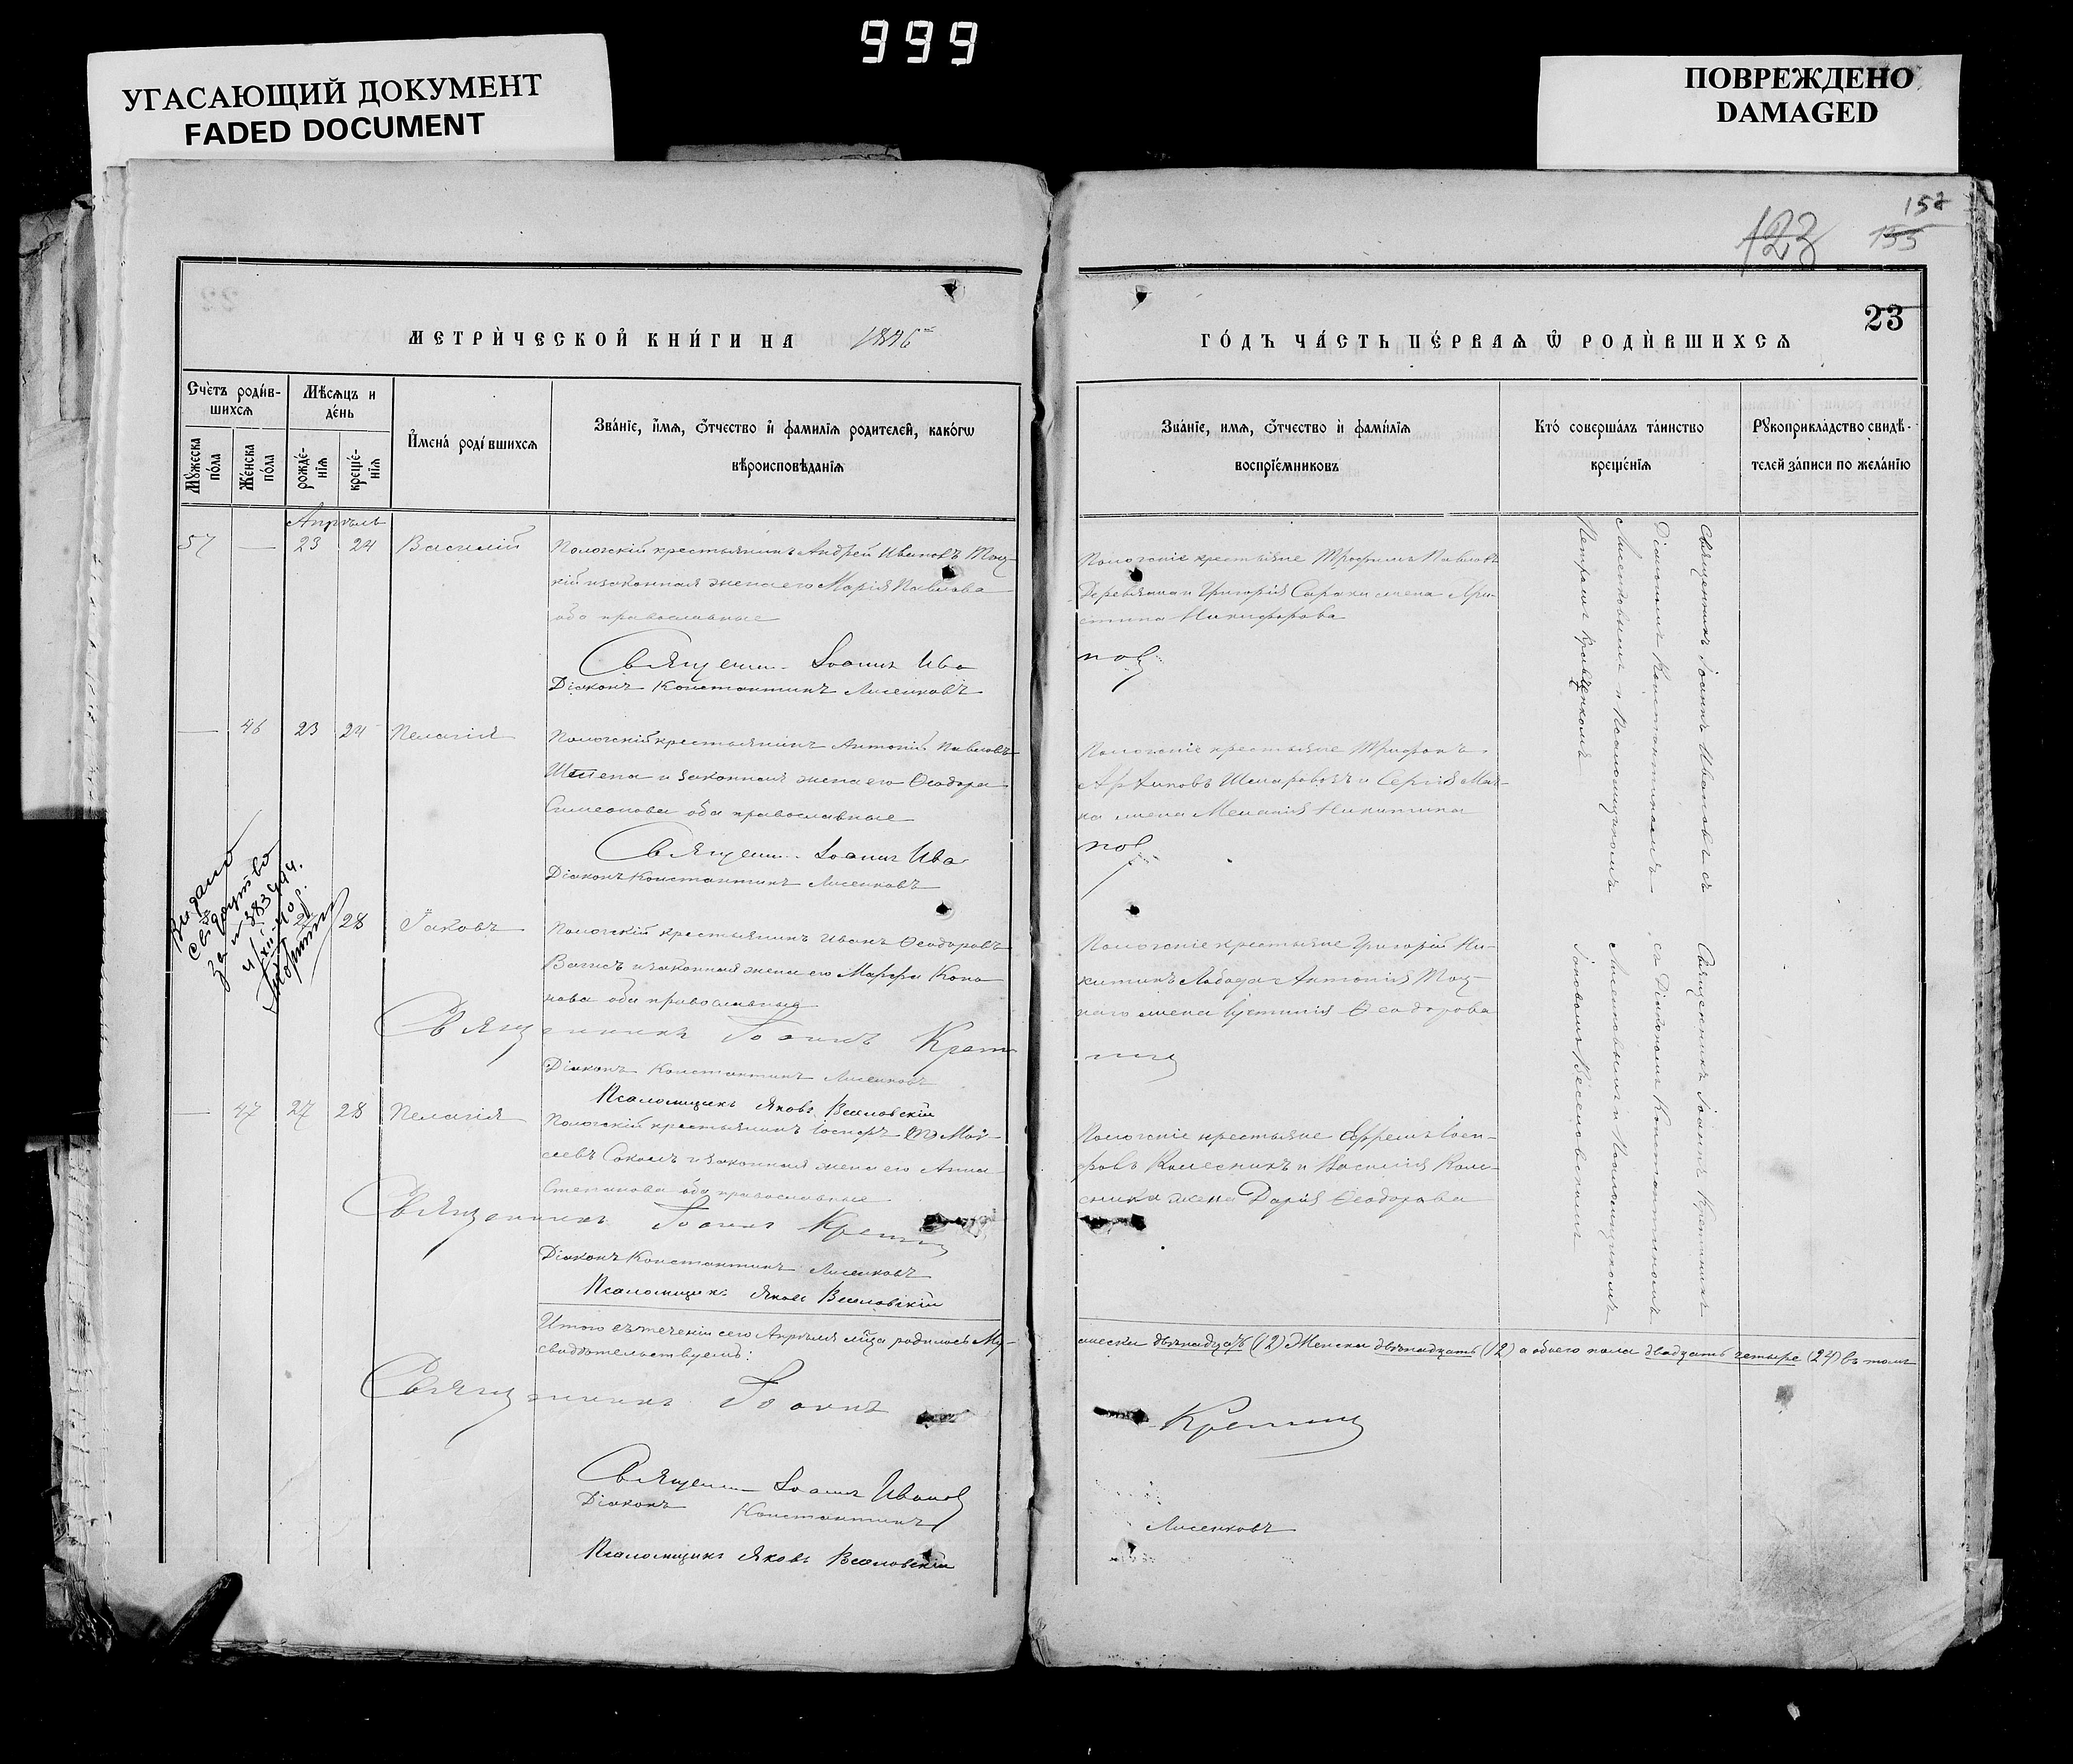 999
УГАСАЮЩИЙ ДОКУМЕНТ
FADED DOCUMENT
ПОВРЕЖДЕНО
DAMAGED
157
155
123
23
МЕТРИ́ЧЕСКОЙ КНИ́ГИ НА 1896
ГО́ДЪ ЧА́СТЬ ПЕ́РВАѦ Ѿ РОДИ́ВШИХСѦ
Сче́тъ роди́в-
шихсѧ
Мꙋ́жеска по́ла
Же́нска по́ла
Мѣ́сѧцъ и
де́нь
рожде́-
нїѧ
креще́-
нїѧ
И҆мена̀ роди́вшихсѧ
Зва́нїе, и҆́мѧ, ѻ҆́тчество и҆ фами́лїѧ роди́телей, како́гѡ
вѣроисповѣ́данїѧ
Зва́нїе, и҆́мѧ, ѻ҆́тчество и҆ фами́лїѧ
воспрїе́мниковъ
Кто̀ соверша́лъ та́инство
креще́нїѧ
Рꙋкоприкла́дство свидѣ́-
телей за́писи по жела́нїю
Апрѣль
57 — 23 24 Василій
Пологскій крестьянинъ Андрей Ивановъ Тоц-
кій и законная жена его Марія Павлова
оба православные
Священн. Іоаннъ Ива
Діаконъ Константинъ Лисенковъ
Пологскіе крестьяне Трофимъ Павловъ
Деревянко и Григорія Сараки жена Хри-
стина Никифорова
нов
Священникъ Іоаннъ Ивановъ съ
Діакономъ Константиномъ
Лисенковымъ и Псаломщикомъ
Петромъ
— 46 23 24 Пелагія
Пологскій крестьянинъ Антоній Павловъ
Шепета и законная жена его Ѳеодора
Симеонова оба православные
Священн. Іоаннъ Ива
Діаконъ Константинъ Лисенковъ
Пологскіе крестьяне Трифонъ
Архиповъ и Сергія
жена Меланія Никитина
нов
Выдано
свідоцтво
за №
27 28 Іаковъ
Пологскій крестьянинъ Иванъ Ѳеодоровъ
и законная жена его Марфа Коно-
нова оба православные
Священникъ Іоаннъ Крат
Діаконъ Константинъ Лисенковъ
Псаломщикъ Яковъ Веселовскій
Пологскіе крестьяне Григорій Ни-
китинъ Лобода и Антонія Тоц-
каго жена Іустинія Ѳеодорова
Священникъ Іоаннъ
съ Діакономъ Константиномъ
Лисенковымъ и Псаломщикомъ
Іаковомъ Веселовскимъ
— 47 27 28 Пелагія
Пологскій крестьянинъ Іосифъ Мои-
сеевъ Соколъ и законная жена его Анна
Степанова оба православные
Священникъ Іоаннъ
Діаконъ Константинъ Лисенковъ
Псаломщикъ Яковъ Веселовскій
Пологскіе крестьяне Ефремъ Іоси-
фовъ Колесникъ и Василія Коле-
сника жена Дарія Ѳеодорова
Итого въ теченіи сего Апрѣля мѣсяца родилось Му-
жески двѣнадцать (12) Женска двѣнадцать (12) а обоего пола двадцать четыре (24) въ томъ
свидѣтельствуемъ:
Священникъ Іоаннъ
Священн. Іоаннъ Иванов
Діаконъ Константинъ Лисенковъ
Псаломщикъ Яковъ Веселовскій